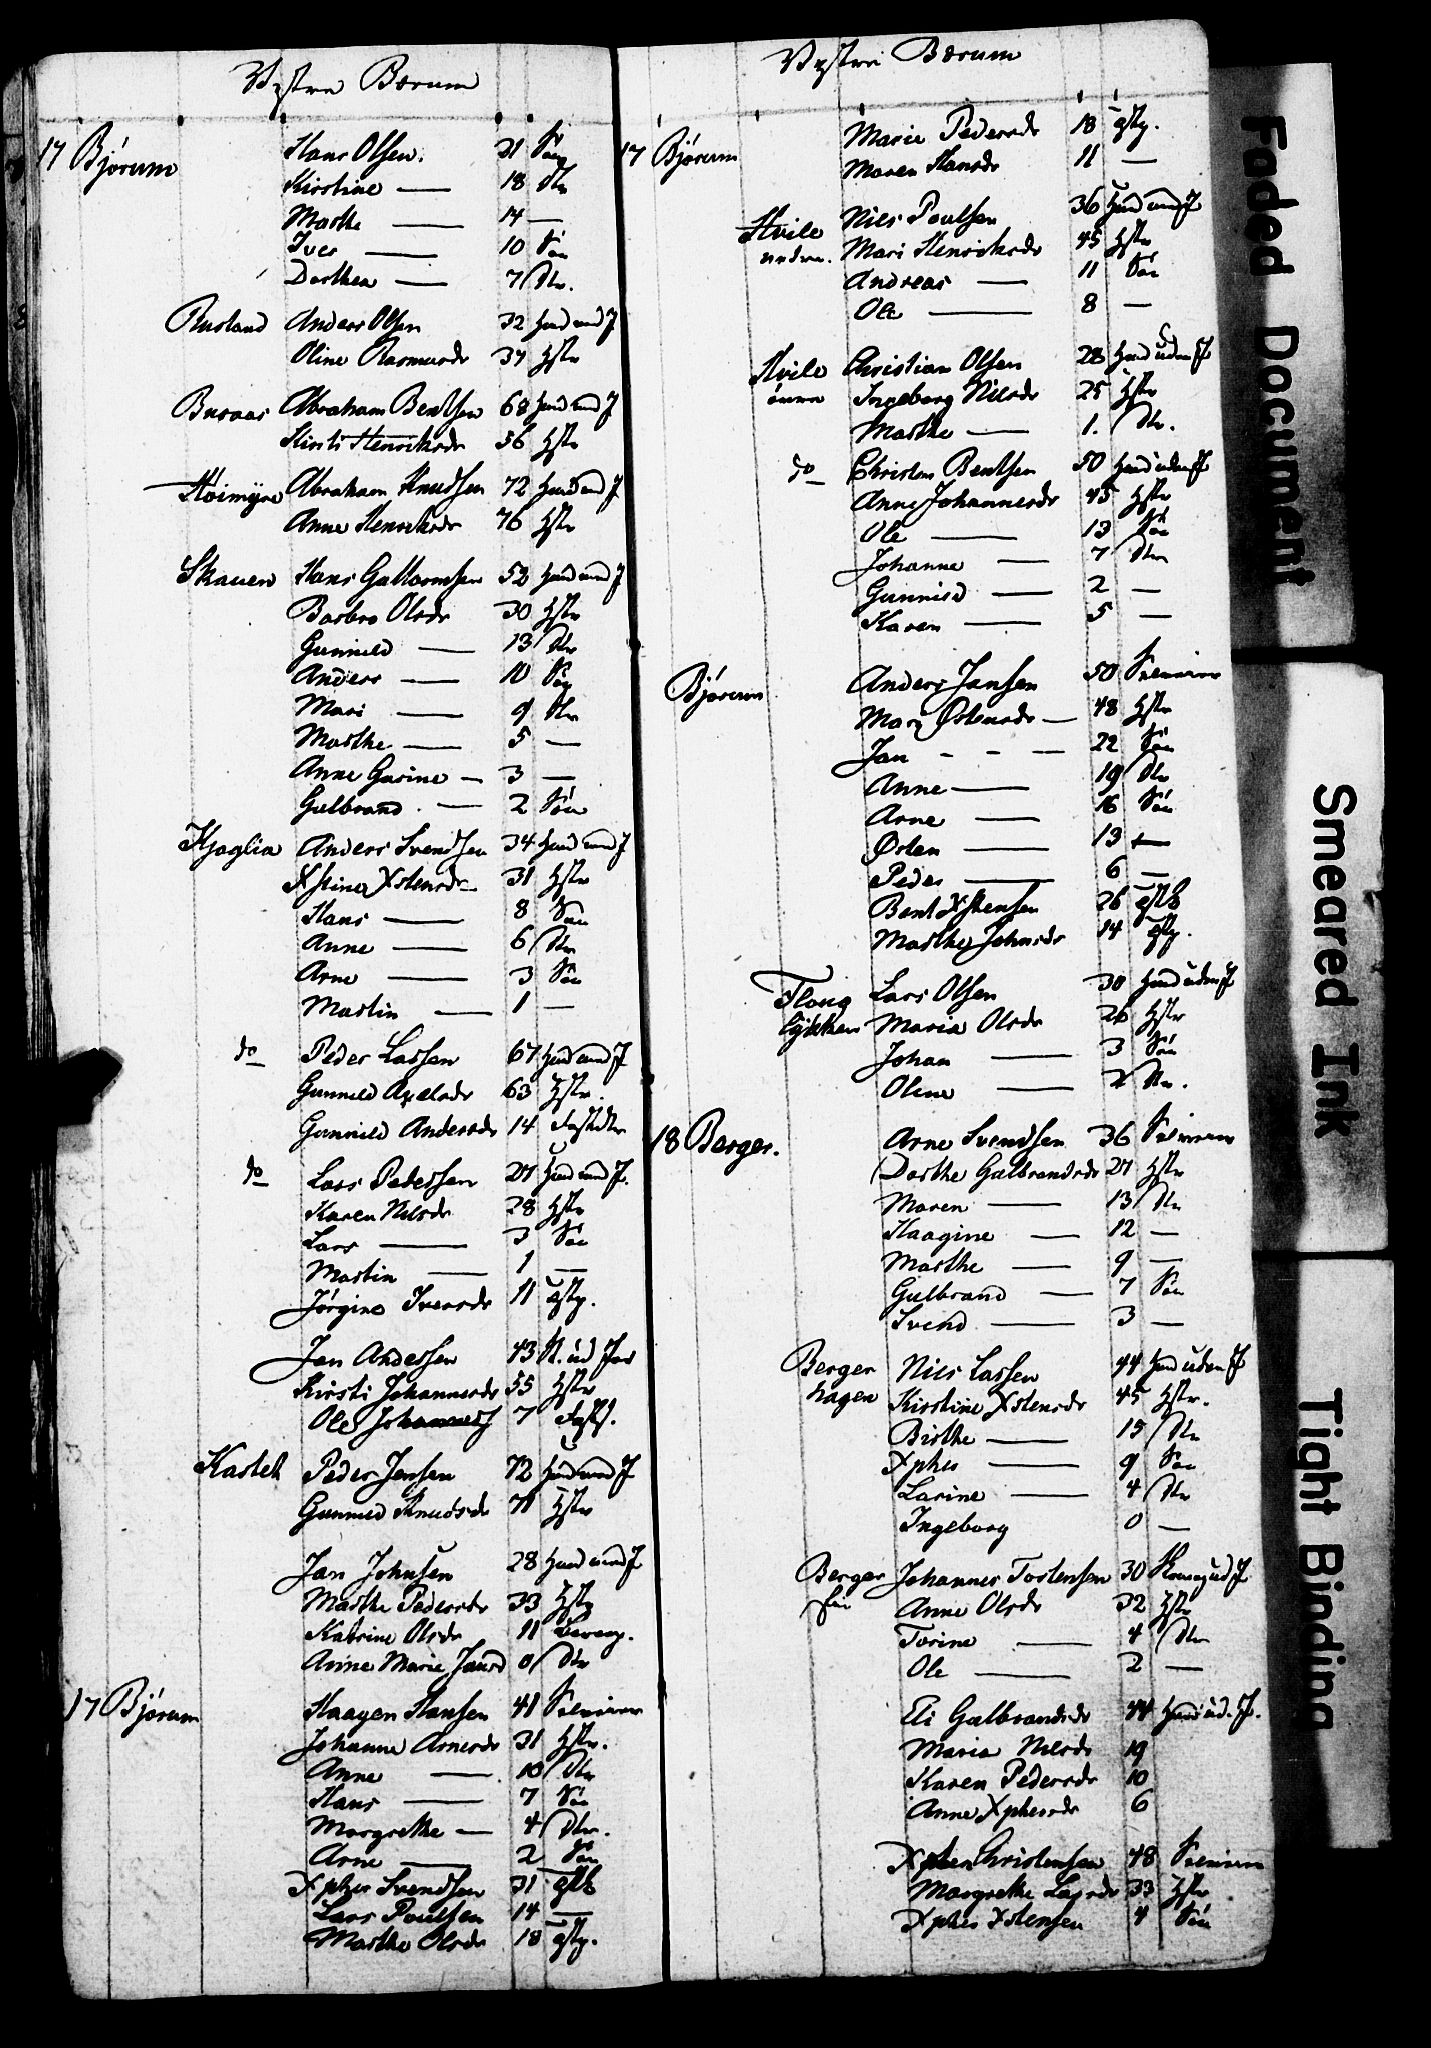 Vestre Bærum
17 Bjørum Hans Olsen. 21 Søn
Kirstine — 18 Dtr
Marthe — 14 —
Iver — 10 Søn
Dorthea — 7 Dtr.
Rusland Anders Olsen 32 Huusmd med J
Oline Rasmusdr 37 Hstr
Buraas Abraham Bentsen 68 Huusmd med J
Kirsti Henriksdr 56 Hstr
Høimyre Abraham Knudsen 72 Huusmd med J
Anne Henriksdr 76 Hstr
Skauen Hans Guttormsen 52 Huusmd med J
Barbro Olsdr 30 Hstr
Gunnild — 13 Dtr
Anders — 10 Søn
Mari — 9 Dtr
Marthe — 5 —
Anne Gurine — 3 —
Gulbrand — 2 Søn
Kjaglia Anders Svendsen 34 Huusmd med J
Xstine Xstensdr 31 Hstr
Hans — 8 Søn
Anne — 6 Dtr
Arne — 3 Søn
Martin — 1 —
do Peder Larsen 67 Huusmd med J
Gunnild Axelsdr 63 Hstr.
Gunnild Andersdr 14
do Lars Pedersen 27 Huusmd med J.
Karen Nilsdr 28 Hstr
Lars — 3 Søn
Martin — 1 —
Jørgine Iversdr 11 Tjstp.
Jan Andersen 43
Kirsti Johannesdr 55 Hstr
Ole Johannes 7
Kastet Peder Jensen 72 Huusmd med J
Gunnild Knudsdr 71 Hstr
Jan Johnsen 28 Huusmd med J
Marthe Pedersdr 33 Hstr
Katrine Olsdr 11
Anne Marie Jansd 0 Dtr
17 Bjørum Haagen Hansen 41 Selveier
Johanne Arnesdr 31 Hstr.
Anne — 10 Dtr
Hans — 7 Søn
Margrethe — 4 Dtr.
Arne — 2 Søn
Xpher Svendsen 31 Tjstk
Lars Poulsen 14 —
Marthe Olsdr 18 Tjstp.
Vestre Bærum
17 Bjørum Marie Pedersdr 18 Tjstp.
Maren Hansdr 11 —
Hvile nedre. Niels Poulsen 36 Huusmd med J
Mari Henriksdr 45 Hstr
Andreas — 11 Søn
Ole — 8 —
Hvile øvre Christian Olsen 28 Huusmd uden J
Ingeborg Nilsdr 25 Hstr
Marthe — 1. Dtr.
do Christen Bentsen 50 Huusmd uden J
Anne Johannesdr 45 Hstr
Ole — 13 Søn
Johanne — 7 Dtr
Gunnild — 2 —
Karen — 5 —
Bjørum Anders Jansen 50 Selveier
Mary Østensdr — 48 Hstr
Jan - - — 22 Søn
Anne — 19 Dtr
Arne — 16 Søn
Østen — 13 —
Peder — 6 —
Bent Xstensen 26 Tjstk
Marthe Johnsdr 14 Tjstp.
Floug løkken Lars Olsen 30 Huusmd uden J
Maria Olsdr 26 Hstr
Johan — 3 Søn
Oline — 2 Dtr.
18 Berger. Arne Svendsen 36 Selveier
Dorthe Gulbrandsdr 27 Hstr
Maren — 13 Dtr
Haagine — 12 —
Marthe — 9 —
Gulbrand — 7 Søn
Svend — 3 —
Berger hagen Nils Larsen 44 Huusmd uden J
Kirstine Xstensdr 45 Hstr.
Birthe — 15 Dtr
Xpher — 9 Søn
Larine — 4 Dtr
Ingeborg 0 —
Berger Johannes Torstensen 30
Anne Olsdr 32 Hstr
Torine — 4 Dtr
Ole — 2 —
Eli Gulbrandsdr 44 Huusmd ud. J.
Maria Nilsdr 19
Karen Pedersdr 10
Anne Xphersdr 6
Xsten Christensen 48 Selveier
Margrethe Larsdr 33 Hstr
Xpher Xstensen 4 Søn
Faded Document
Smeared Ink
Tight Binding